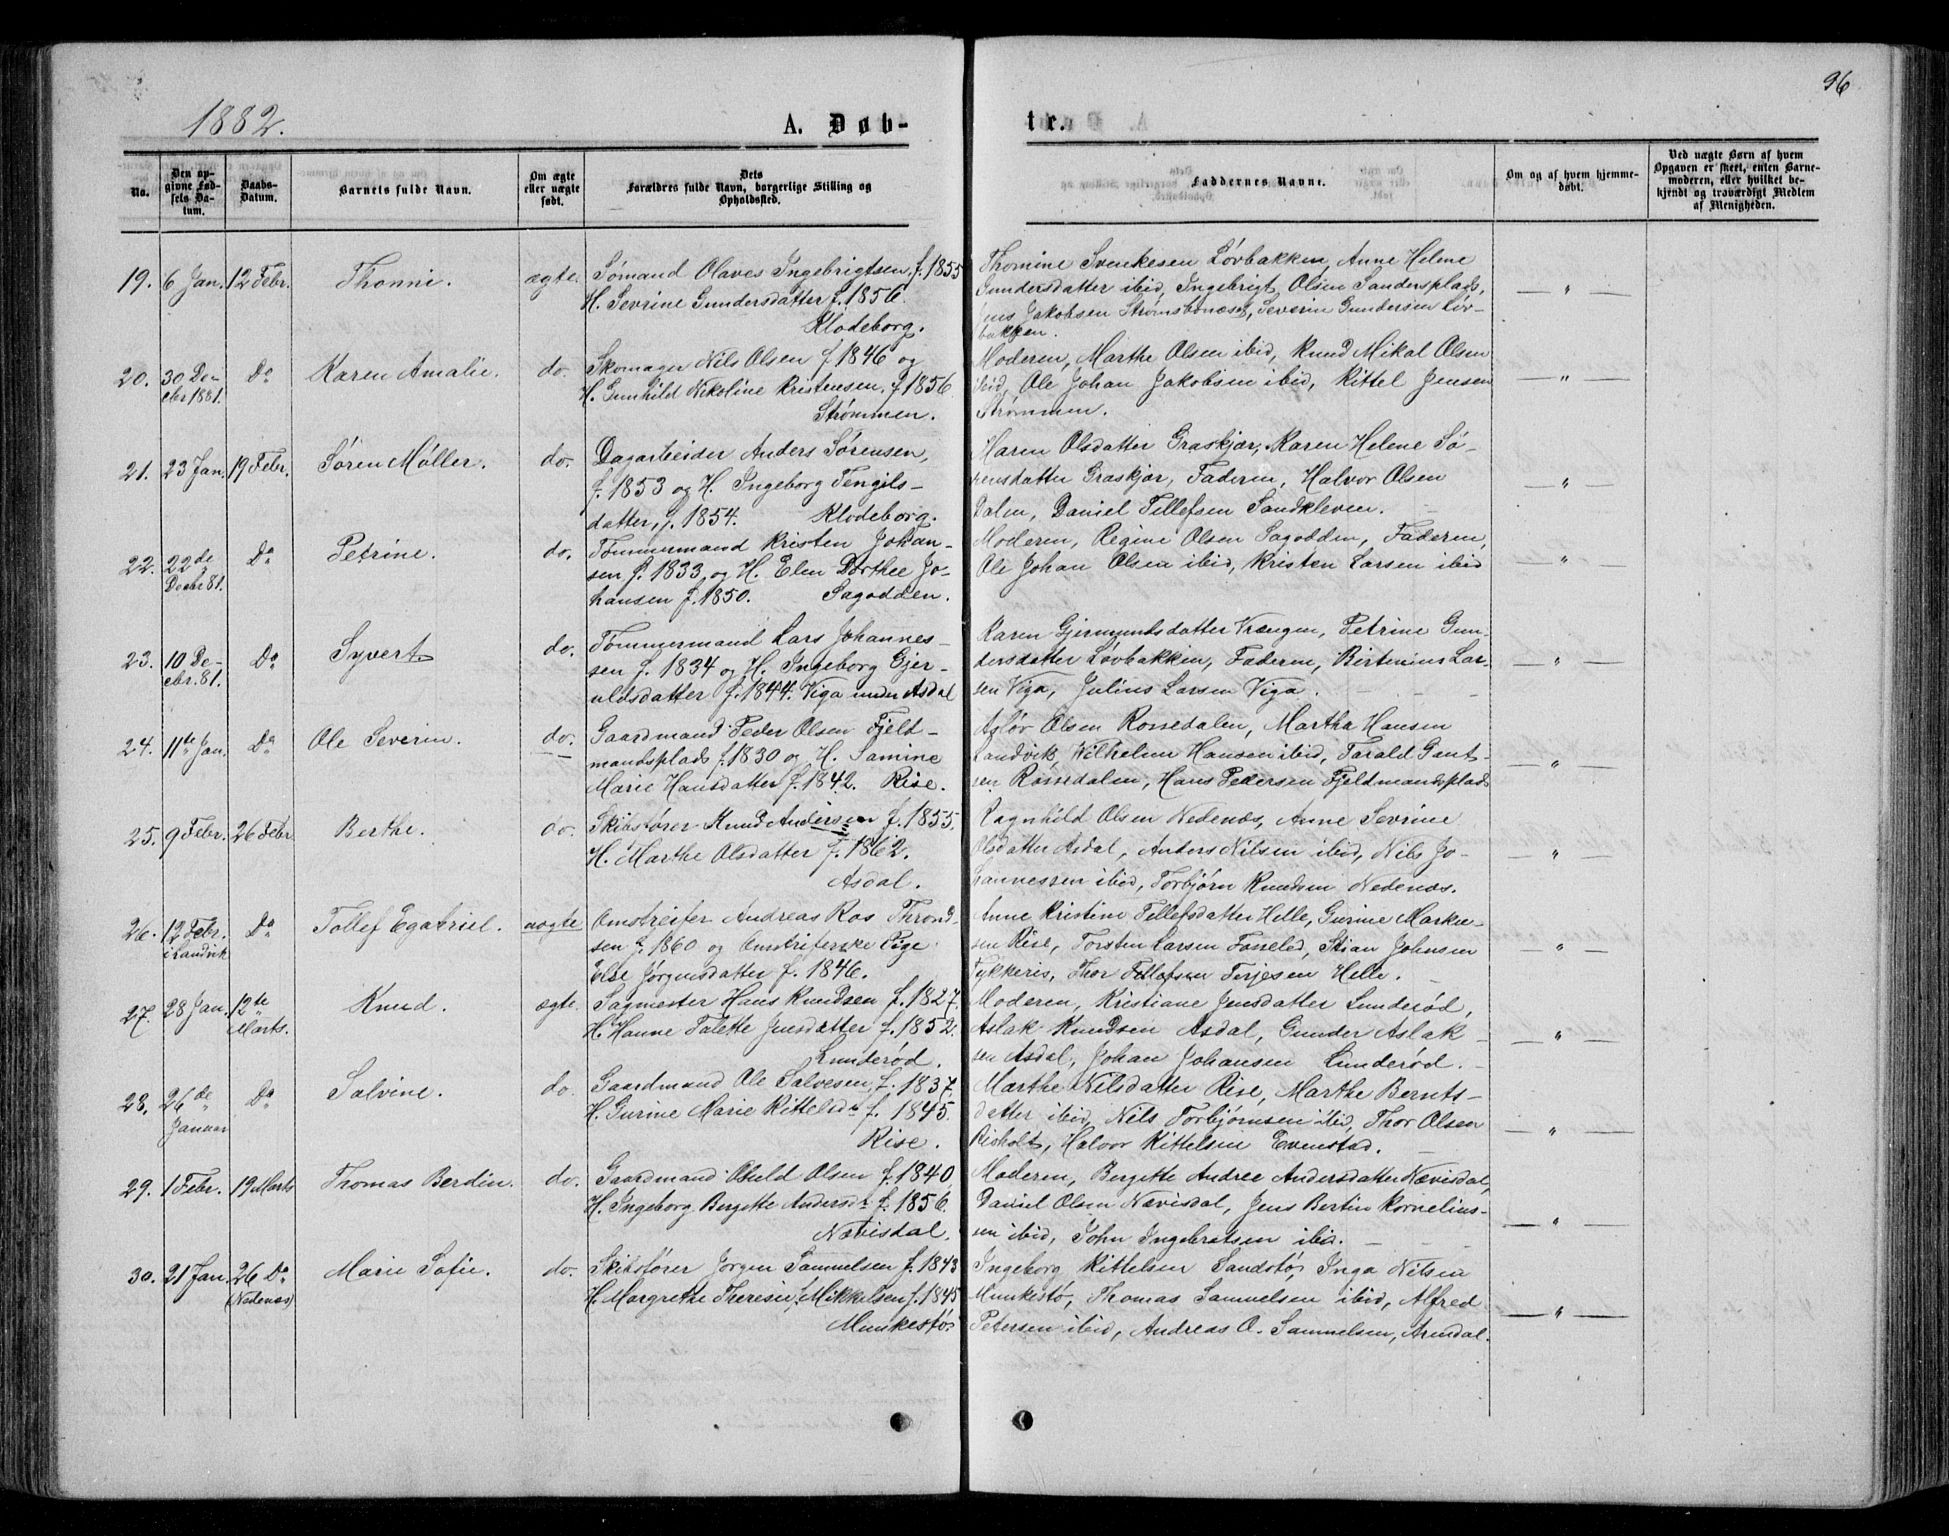 96
1882.
A. Døb-
tr.
No.
Den op-
givne Fød-
sels Da-
tum.
Daabs-
Datum.
Barnets fulde Navn.
Om ægte
eller uægte
født.
Dets
Forældres fulde Navn, borgerlige Stilling og
Opholdssted.
Faddernes Navne.
Om og af hvem hjemme-
døbt.
Ved uægte Børn af hvem
Opgaven er skeet, enten Barne-
moderen, eller hvilket be-
kjendt og troværdigt Medlem
af Menigheden.
19. 6 Jan. 12 Febr. Thonni. ægte.
Sømand Olaves Ingebrigtsen, f. 1855
H. Sevrine Gundersdatter f. 1856.
Klodeborg.
Thomine Svenkesen Løvbakken, Anne Helene
Gundersdatter ibid, Ingebrigt Olsen Sandersplads,
Jens Jakobsen Strømsbonæset, Severin Gundersen Løv-
bakken.
— " —
20. 30 De-
cbr 1881. Do Karen Amalie. do.
Skomager Nils Olsen f. 1846 og
H. Gunhild Nikoline Kristensen, f. 1856
Strømmen.
Moderen, Marthe Olsen ibid, Knud Mikal Olsen
ibid, Ole Johan Jakobsen ibid, Kittel Jensen
Strømmen.
— " —
21. 23 Jan. 19 Febr. Søren Møller. do.
Dagarbeider Anders Sørensen,
f. 1853 og H. Ingeborg Tengils-
datter, f. 1854. Klodeborg.
Maren Olsdatter Graskjær, Karen Helene Sø-
rensdatter Graskjær, Faderen, Halvor Olsen
Dalen, Daniel Tellefsen Sandkleven.
— " —
22. 22de
Decbr 81. Do Petrine. do.
Tømmermand Kristen Johan-
sen f. 1833 og H. Elen Dorthee Jo-
hansen f. 1850. Sagodden.
Moderen, Regine Olsen Sagodden, Faderen,
Ole Johan Olsen ibid, Kristen Larsen ibid
— " —
23. 10 De-
cbr. 81. Do Syvert. do.
Tømmermand Lars Johannes-
sen f. 1834 og H. Ingeborg Gjer-
uldsdatter f. 1844. Viga under Asdal
Karen Gjermundsdatter Vrængen, Petrine Gun-
dersdatter Løvbakken, Faderen, Birtenius Lar-
sen Viga, Julius Larsen Viga.
— " —
24. 11te Jan. Do Ole Severin. do.
Gaardmand Peder Olsen Fjeld-
mandsplads f. 1830 og H. Samine
Marie Hansdatter f. 1842. Rise.
Asløv Olsen Rossedalen, Martha Hansen
Landvik, Wilhelm Hansen ibid, Tarald Gunt-
sen Rossedalen, Hans Pedersen Fjeldmandsplads
— " —
25. 9 Febr. 26 Febr Berthe. do.
Skibsfører Knud Andersen f. 1855,
H. Marthe Olsdatter f. 1862.
Asdal.
Ragnhild Olsen Nedenæs, Anne Sevrine
Olsdatter Asdal, Anders Nilsen ibid, Nils Jo-
hannessen ibid, Torbjørn Knudsen Nedenæs.
— " —
26. 12 Febr.
i Landvik Do Tollef Egatriel. uægte
Omstreifer Andreas Ros Thrond-
sen f. 1860 og Omstreiferske Pige
Else Jørgensdatter f. 1846.
Anne Kristine Tellefsdatter Helle, Gurine Marku-
sen Rise, Torsten Larsen Fosseled, Stian Johnsen
Lykkeris, Thor Tellefsen Terjesen Helle.
— " —
27. 28 Jan. 12te
Marts. Knud. ægte.
Sagmester Hans Knudsen f. 1827.
H. Hanne Talette Jensdatter f. 1852
Lunderød.
Moderen, Kristiane Jensdatter Lunderød,
Aslak Knudsen Asdal, Gunder Aslak-
sen Asdal, Johan Johansen Lunderød.
— " —
28. 26de
Januar Do Salvine. do.
Gaardmand Ole Salvesen, f. 1837,
H. Gurine Marie Kittelsdr f. 1845.
Rise.
Marthe Nilsdatter Rise, Marthe Bernts-
datter ibid, Nils Torbjørnsen ibid, Thor Olsen
Risholt, Halvor Kittelsen Evenstad.
— " —
29. 1 Febr. 19 Marts Thomas Berdin. do.
Gaardmand Osuld Olsen f. 1840,
H. Ingeborg Bergitte Andersdr f. 1856.
Nævisdal.
Moderen, Bergitte Andree Andersdatter Nævisdal,
Daniel Olsen Nævisdal, Jens Bertin Kornelius-
sen ibid, John Ingebretsen ibid.
— " —
30. 21 Jan. 26 Do
(Nedenæs) Marie Sofie. do.
Skibsfører Jørgen Samuelsen f. 1843
H. Margrethe Theresie Mikkelsen f. 1845
Munkestø.
Ingeborg Kittelsen Sandstø, Inga Nilsen
Munkestø, Thomas Samuelsen ibid, Alfred
Petersen ibid, Andreas O. Samuelsen, Arendal.
— " —